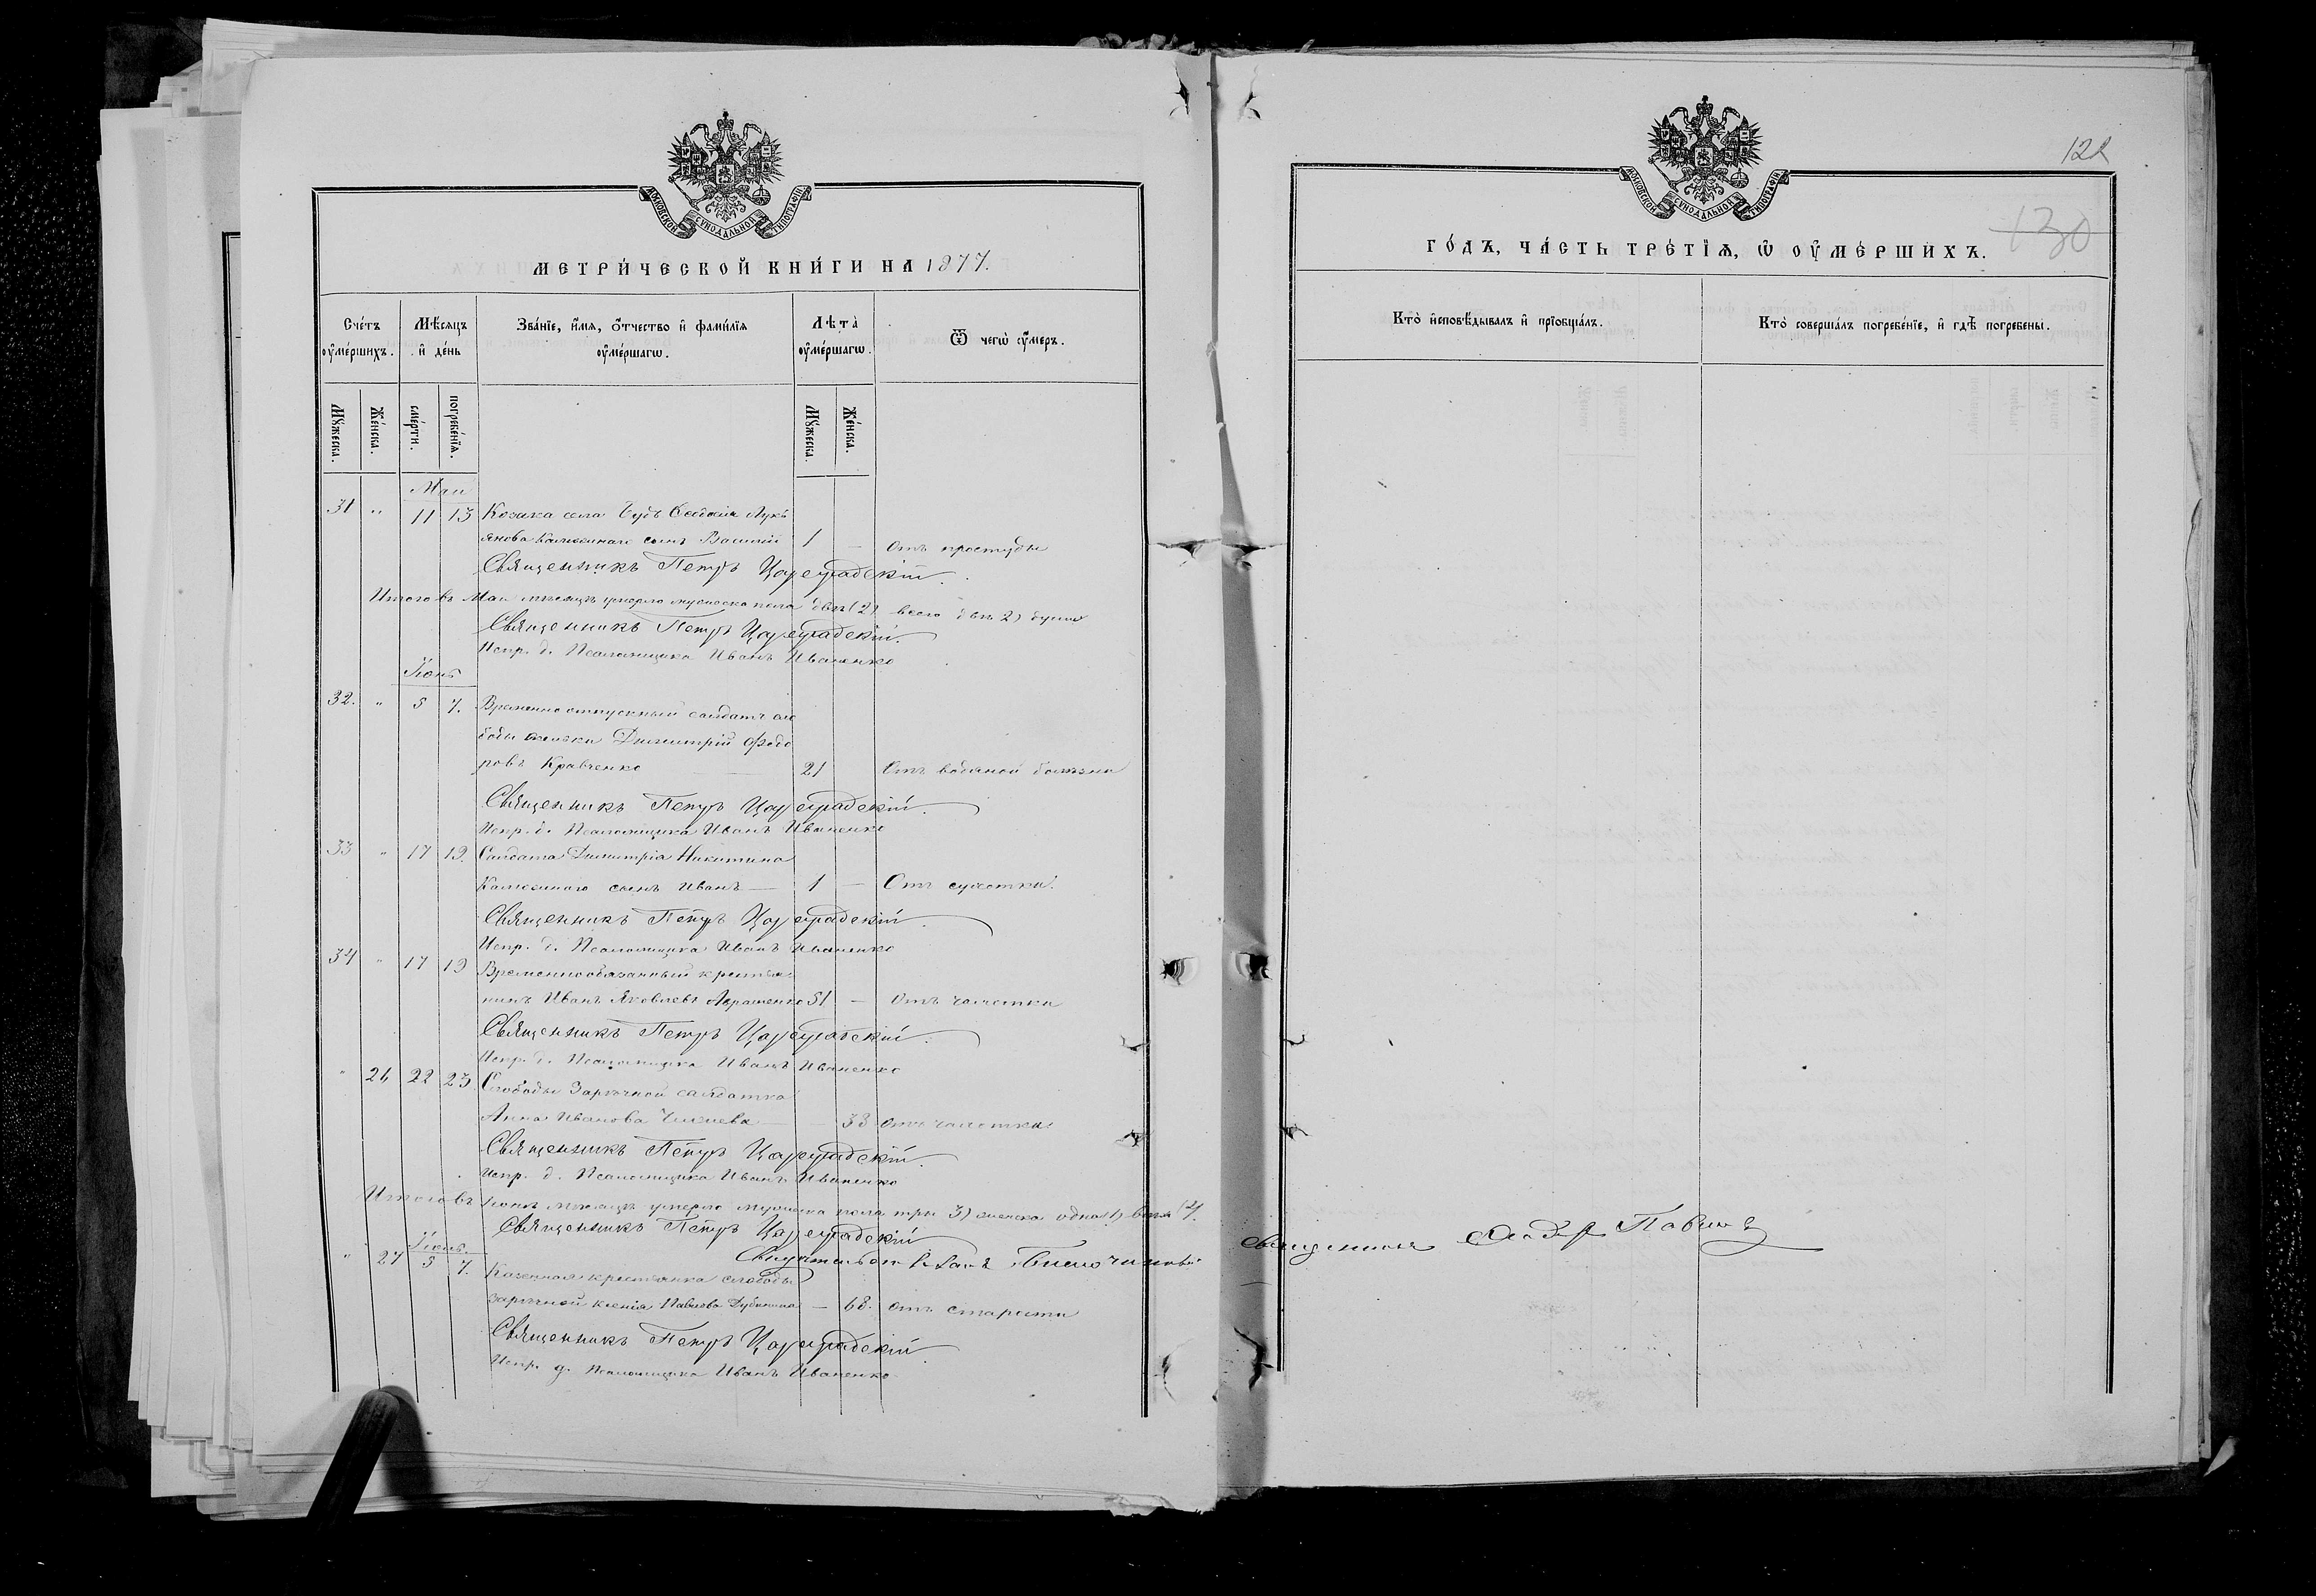 МОСКОВСКОЙ СѴНОДАЛЬНОЙ ТИПОГРАФІИ
МЕТРИ́ЧЕСКОЙ КНИ́ГИ НА 1877.
Сче́тъ ᲂу҆ме́ршихъ.
Мѣ́сяцъ и҆ де́нь
Зва́нїе, и҆́мя, ѻ҆́тчество и҆ фами́лїя ᲂу҆ме́ршагѡ.
Лѣ́та ᲂу҆ме́ршагѡ.
Ѿ чегѡ̀ ᲂу҆́меръ.
Мꙋ́жеска.
Же́нска.
сме́рти.
погребе́нїя.
Мꙋ́жеска.
Же́нска.
Маи
31 " 11 13 Козака села Лукь
янова Калюжнаго сынъ Василій 1 — Отъ простуды
Священникъ Петръ Цареградскій.
Итого въ Маи мѣсяцѣ умерло мужеска пола двѣ (2) всего двѣ 2) души
Священникъ Петръ Цареградскій.
Испр. д. Псаломщика Иванъ Иваненко
Іюнь
32. " 5 7. Временно отпускный солдатъ сло
боды Димитрій Федо
ровъ Кравченко 21 Отъ водяной болѣзни
Священникъ Петръ Цареградскій.
Испр. д. Псаломщика Иванъ Иваненко
33 " 17 19. Солдата Димитрія Никитина
Калюжнаго сынъ Иванъ — 1 — Отъ сухотки.
Священникъ Петръ Цареградскій.
Испр. д. Псаломщика Иванъ Иваненко
34 " 17 19 Временнообязанный крестья
нинъ Иванъ Яковлевъ Авраменко 51 — Отъ чахотки
Священникъ Петръ Цареградскій.
Испр. д. Псаломщика Иванъ Иваненко
" 26 22 23. Слободы Зарѣчной солдатка
Анна Иванова — 33 Отъ чахотки
Священникъ Петръ Цареградскій.
Испр. д. Псаломщика Иванъ Иваненко
Итого въ Іюнѣ мѣсяцѣ умерло мужеска пола три 3) женска одна 1) всего (4).
Священникъ Петръ Цареградскій
Іюль.
" 27 5 7. Казенная крестьянка слободы
Зарѣчной Ксенія Павлова Дубинина — 68. Отъ старости
Священникъ Петръ Цареградскій.
Испр. д. Псаломщика Иванъ Иваненко
122
130
МОСКОВСКОЙ СѴНОДАЛЬНОЙ ТИПОГРАФІИ
ГО́ДЪ, ЧА́СТЬ ТРЕ́ТЇѦ, Ѡ҆ ОУ҆МЕ́РШИХЪ.
Кто̀ и҆сповѣ́дывалъ и҆ прїобща́лъ.
Кто̀ соверша́лъ погребе́нїе, и҆ гдѣ̀ погребены̀.
Священникъ